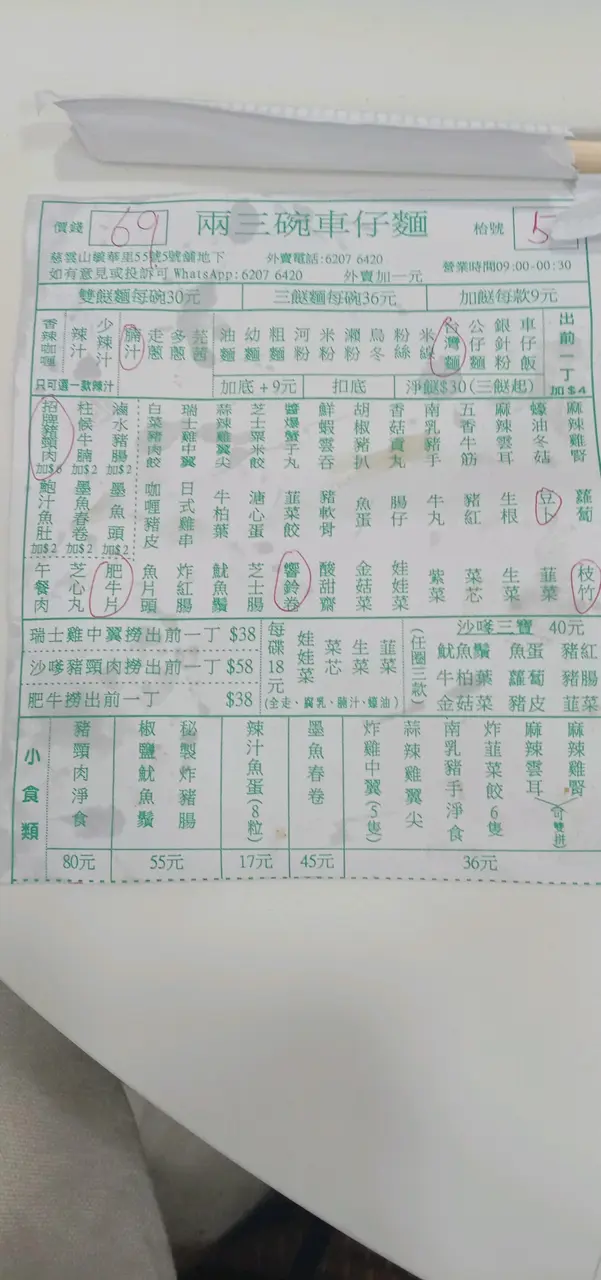 價錢 69 兩三碗車仔麵 枱號 5
慈雲山毓華里55號5號舖地下 外賣電話:6207 6420
如有意見或投訴可 WhatsApp:6207 6420 外賣加一元 營業時間09:00-00:30
雙餸麵每碗30元 三餸麵每碗36元 加餸每款9元
香辣咖喱 辣汁 少辣汁 腩汁 走蔥 多蔥 芫茜 油麵 幼麵 粗麵 河粉 米粉 瀨粉 烏冬 粉絲 米線 台灣麵 公仔麵 銀針粉 車仔飯 出前一丁加$4
只可選一款辣汁 加底+9元 扣底 淨餸$30(三餸起)
招牌豬頸肉加$6 柱候牛腩加$2 滷水豬腸加$2 白菜豬肉餃 瑞士雞中翼 蒜辣雞翼尖 芝士粟米餃 醬爆蟹子丸 鮮蝦雲吞 胡椒豬扒 香菇貢丸 南乳豬手 五香牛筋 麻辣雲耳 蠔油冬菇 麻辣雞腎
鮑汁魚肚加$2 墨魚春卷加$2 墨魚頭加$2 咖喱豬皮 日式雞串 牛柏葉 溏心蛋 韮菜餃 豬軟骨 魚蛋 腸仔 牛丸 豬紅 生根 豆卜 蘿蔔
午餐肉 芝心丸 肥牛片 魚片頭 炸紅腸 魷魚鬚 芝士腸 響鈴卷 酸甜齋 金菇菜 娃娃菜 紫菜 菜芯 生菜 韮菜 枝竹
瑞士雞中翼撈出前一丁 $38
沙嗲豬頸肉撈出前一丁 $58
肥牛撈出前一丁 $38
每碟18元 娃娃菜 菜芯 生菜 韮菜
(全走、腐乳、腩汁、蠔油)
(任圈三款) 沙嗲三寶 40元
魷魚鬚 魚蛋 豬紅
牛柏葉 蘿蔔 豬腸
金菇菜 豬皮 韮菜
小食類
豬頸肉淨食 椒鹽魷魚鬚 秘製炸豬腸 辣汁魚蛋(8粒) 墨魚春卷 炸雞中翼(5隻) 蒜辣雞翼尖 南乳豬手淨食 炸韮菜餃6隻 麻辣雲耳 麻辣雞腎
(可雙拼)
80元 55元 17元 45元 36元